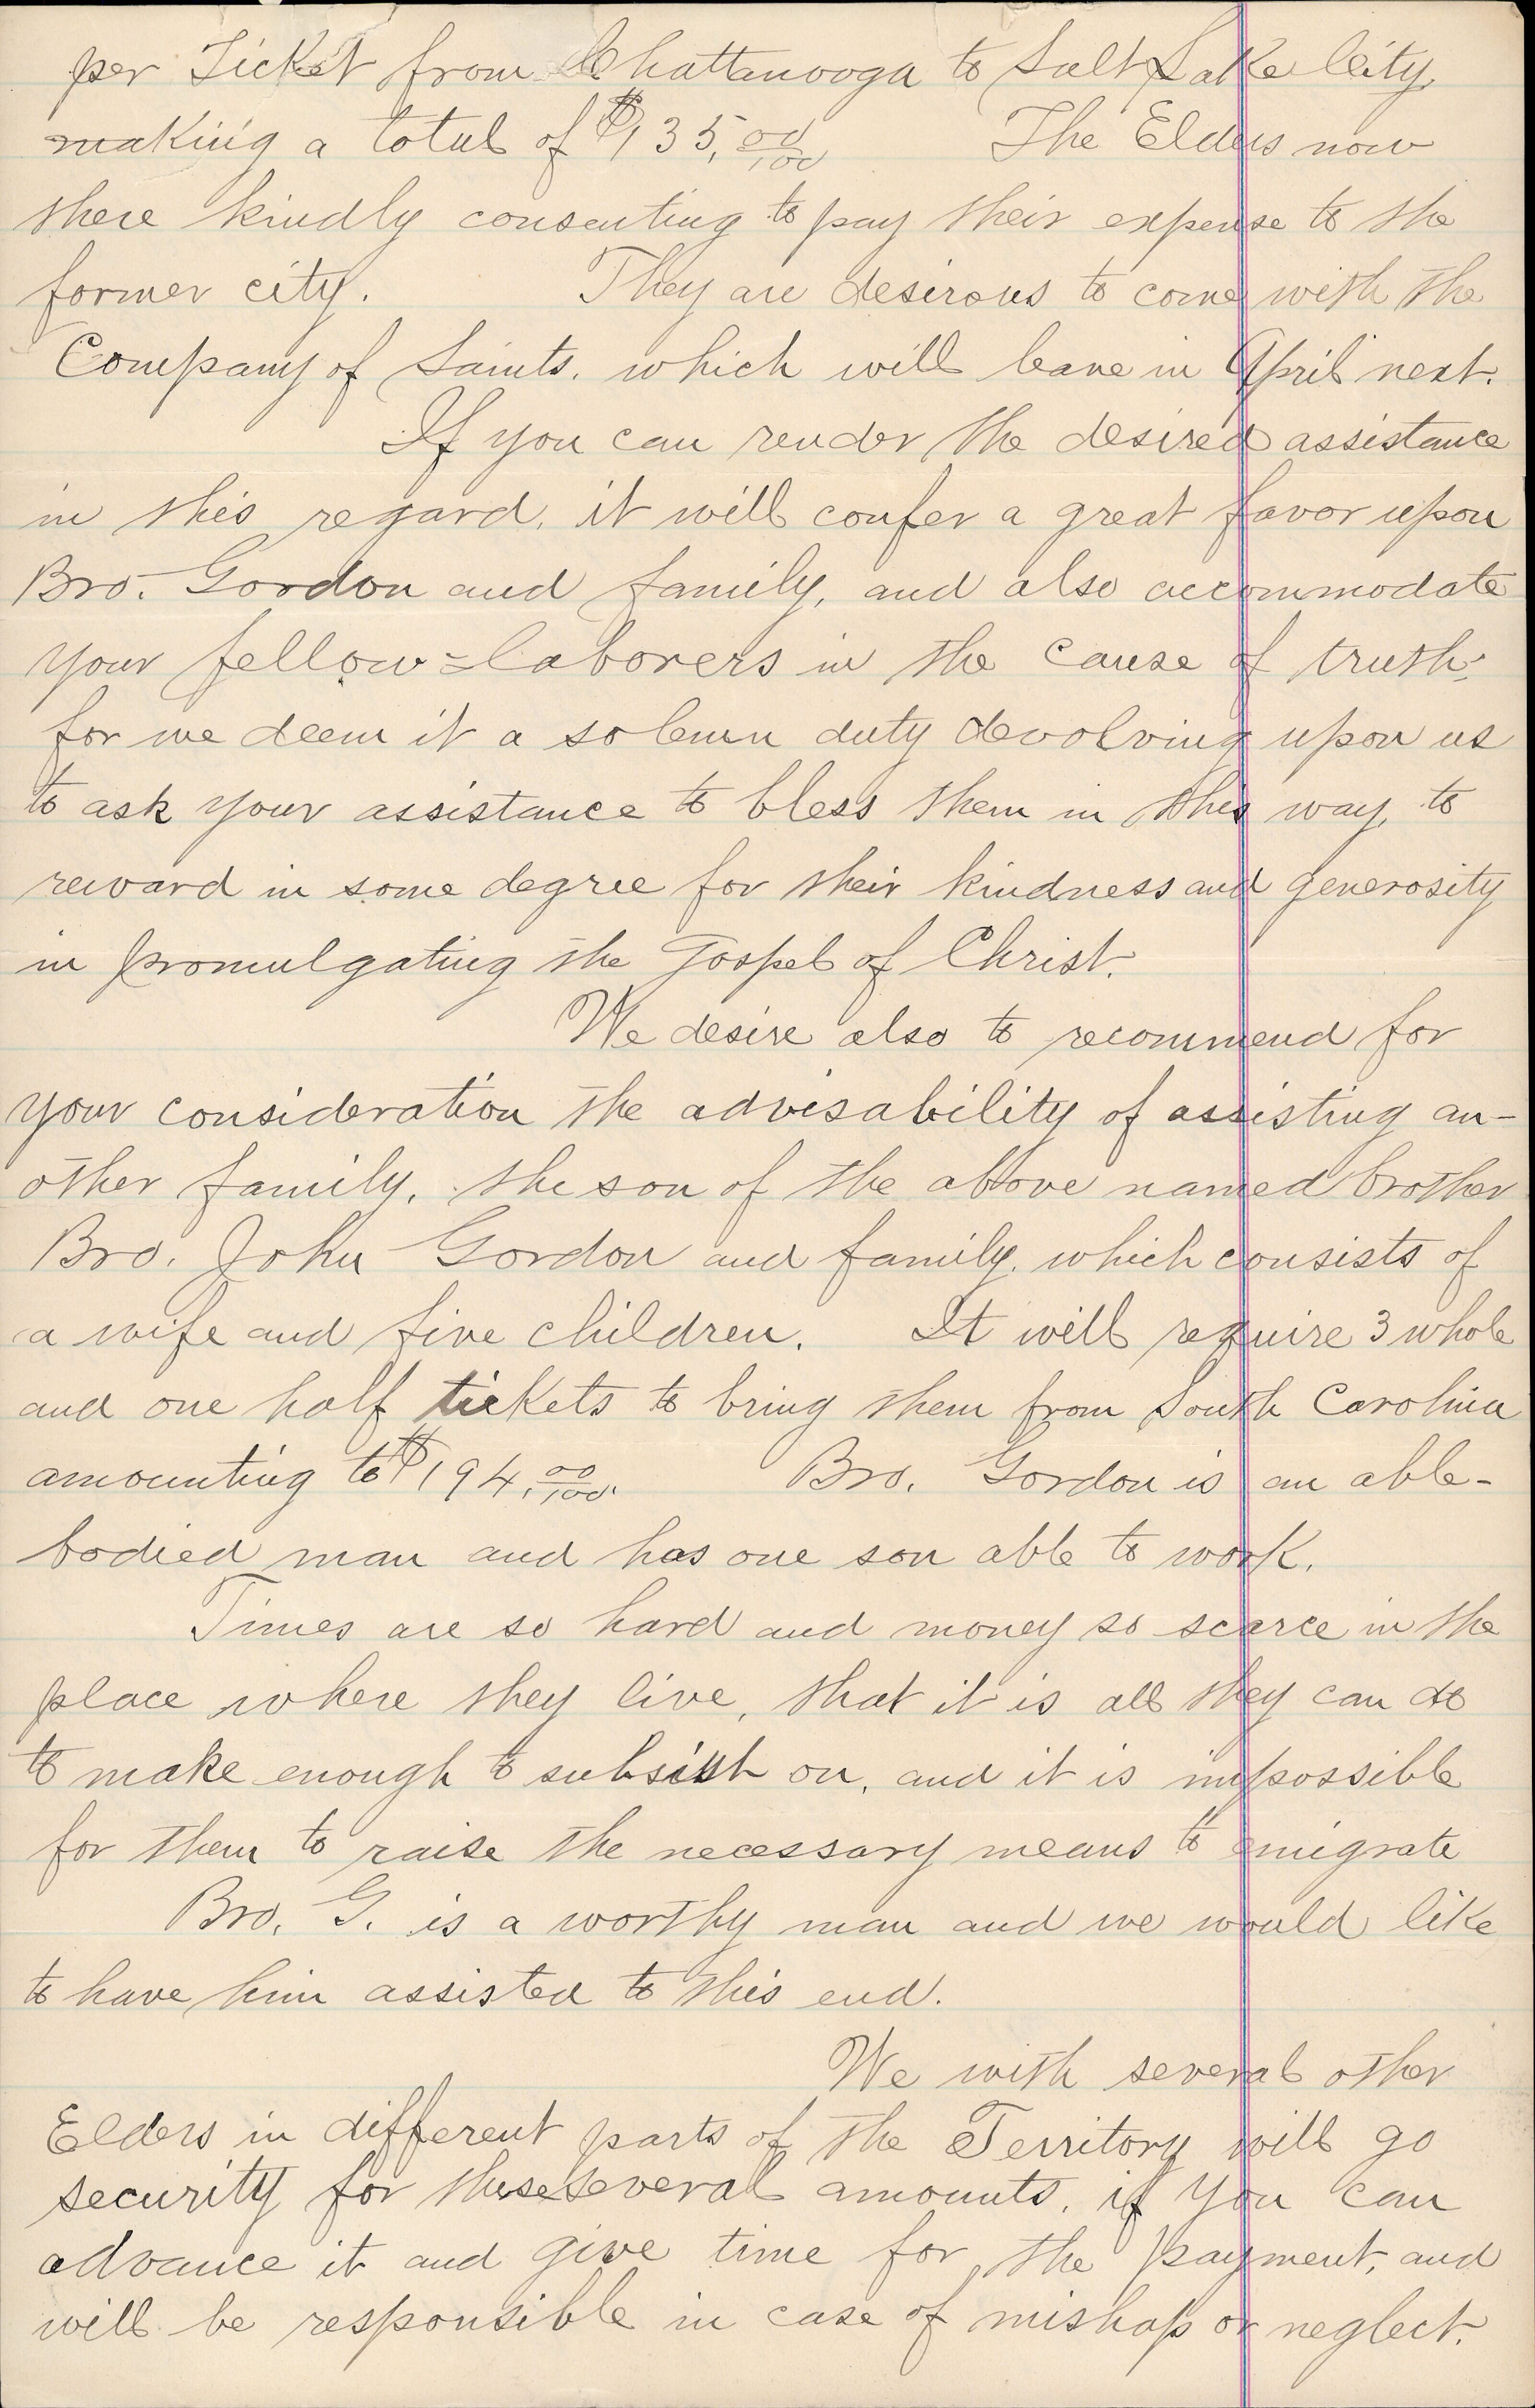 per Ticket from Chattanooga to Salt Lake City,
making a total of $135,00/100 The Elders now
there kindly consenting to pay their expense to the
former city. They are desirous to come with the
Company of Saints, which will leave in April next.
If you can render the desired assistance
in this regard, it will confer a great favor upon
Bro. Gordon and family, and also accommodate
your fellow=laborers in the cause of truth;
for we deem it a solemn duty devolving upon us
to ask your assistance to bless them in this way, to
reward in some degree for their kindness and generosity
in promulgating the Gospel of Christ.
We desire also to recommend for
your consideration the advisability of assisting an-
other family, the son of the above named brother
Bro. John Gordon and family, which consists of
a wife and five children. It will require 3 whole
and one half tickets to bring them from South Carolina
amounting to $194,00/100. Bro. Gordon is an able-
bodied man and has one son able to work.
Times are so hard and money so scarce in the
place where they live, that it is all they can do
to make enough to subsist on, and it is impossible
for them to raise the necessary means to emigrate
Bro. G. is a worthy man and we would like
to have him assisted to this end.
We with several other
Elders in different parts of the Territory will go
security for these several amounts, if you can
advance it and give time for the payment, and
will be responsible in case of mishap or neglect.